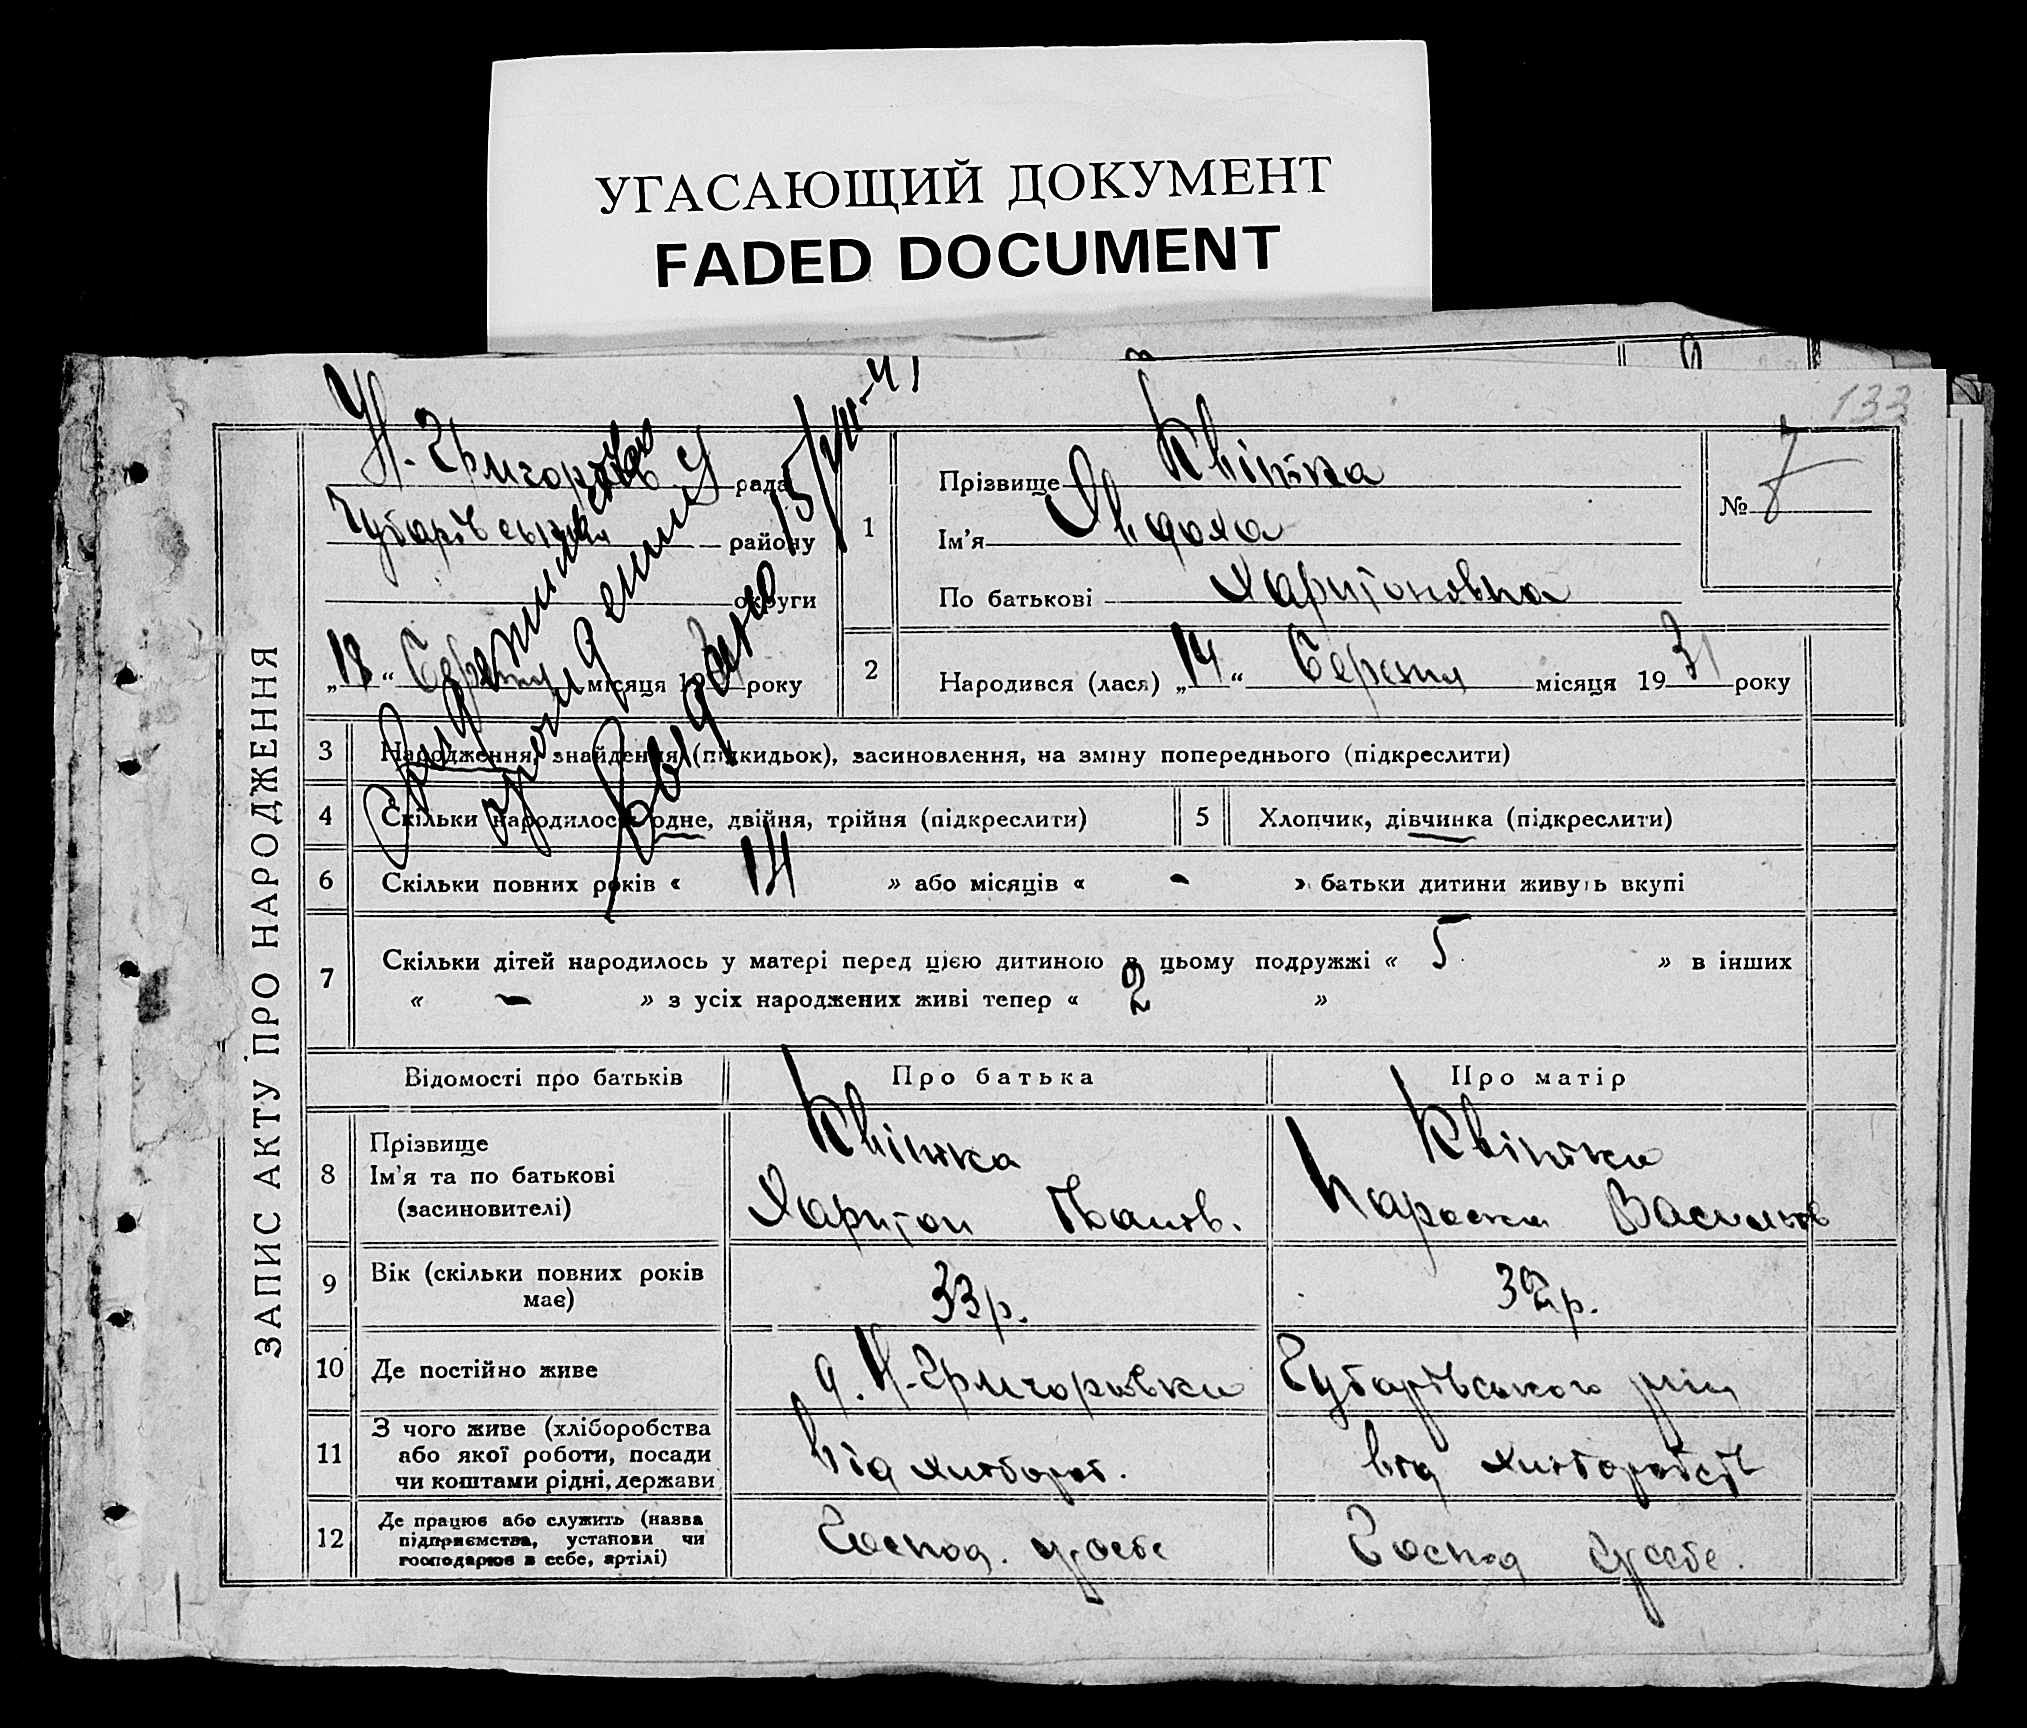 УГАСАЮЩИЙ ДОКУМЕНТ
FADED DOCUMENT
132
ЗАПИС АКТУ ПРО НАРОДЖЕННЯ
рада
району
округи
„18“ Серпня місяця 1931 року
Выдано 15/VIII-41
1
Прізвище Квітка
Ім'я Явдоха
По батькові Харитоновна
№
2
Народився (лася) „14“ Серпня місяця 1931 року
3 Народження, знайдення (підкидьок), засиновлення, на зміну попереднього (підкреслити)
4 Скільки народилось: одне, двійня, трійня (підкреслити)
5 Хлопчик, дівчинка (підкреслити)
6 Скільки повних років « 14 » або місяців « - » батьки дитини живуть вкупі
7 Скільки дітей народилось у матері перед цією дитиною в цьому подружжі « 5 » в інших
« - » з усіх народжених живі тепер « 2 »
Відомості про батьків Про батька Про матір
8 Прізвище
Ім'я та по батькові
(засиновителі)
Квітка
Харитон Іванов.
Квітка
Параска Васильов
9 Вік (скільки повних років
має)
33 р.
32 р.
10 Де постійно живе
с. Н-Григоровка
Чубарівського
11 З чого живе (хліборобства
або якої роботи, посади
чи коштами рідні, держави
від хлібороб.
від хліборобств
12 Де працює або служить (назва
підприємства, установи чи
господарює в себе, артілі)
Господ. у себе
Господ у себе.